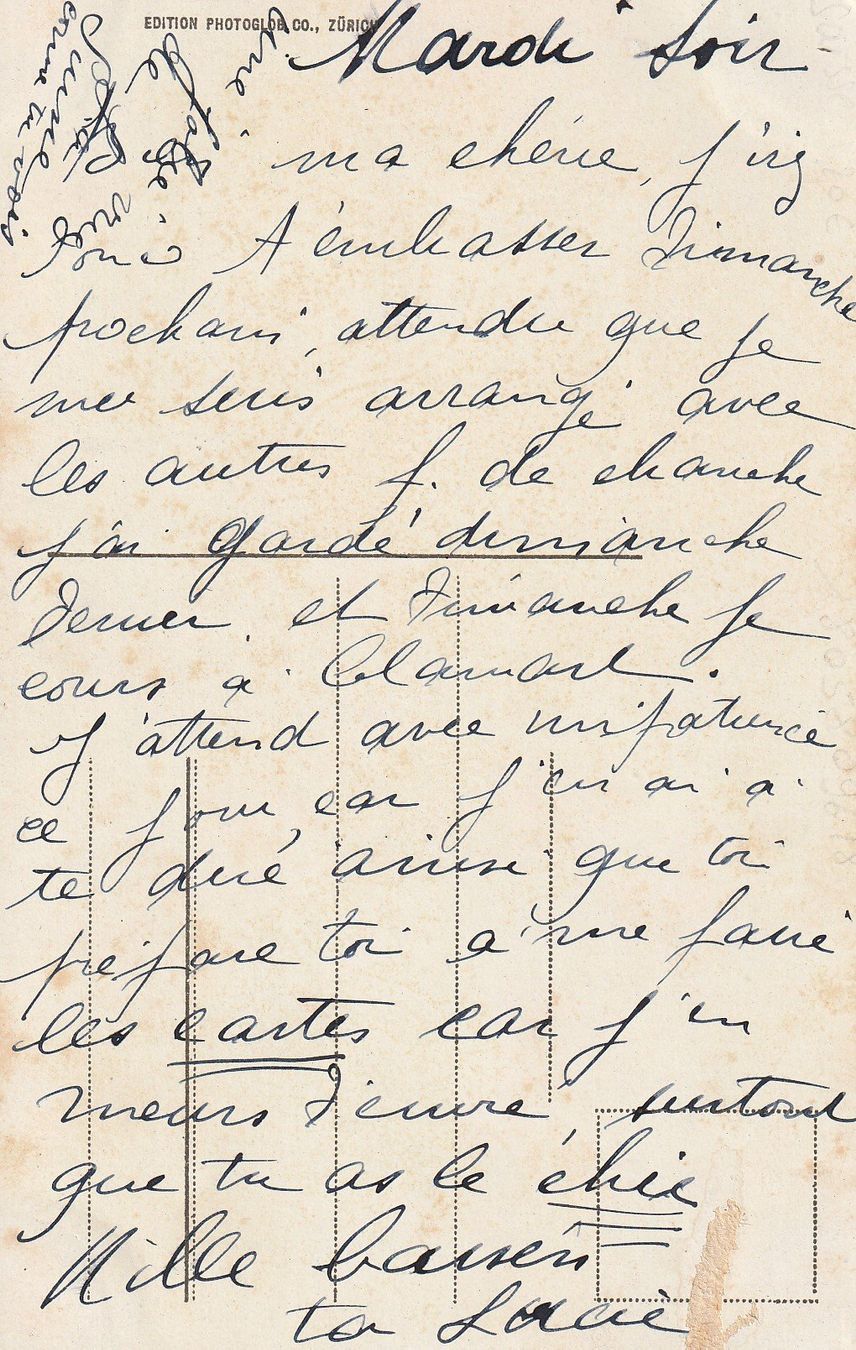 EDITION PHOTOGLOB CO., ZÜRICH
Mardi Soir
ma chérie, j'irg
donc t'embrasser Dimanche
prochain, attendu que je
me suis arrangé avec
les autres f. de chambre
j'ai gardé dimanche
dernier et Dimanche je
cours à Clamart.
J'attend avec impatience
ce jour, car j'en ai à
te dire ainsi que toi
prépare toi à me faire
les cartes car j'en
meurs d'envie, surtout
que tu as le chic
Mille baisers
ta Lucie
une
de
Jolie vue
comme tu vois